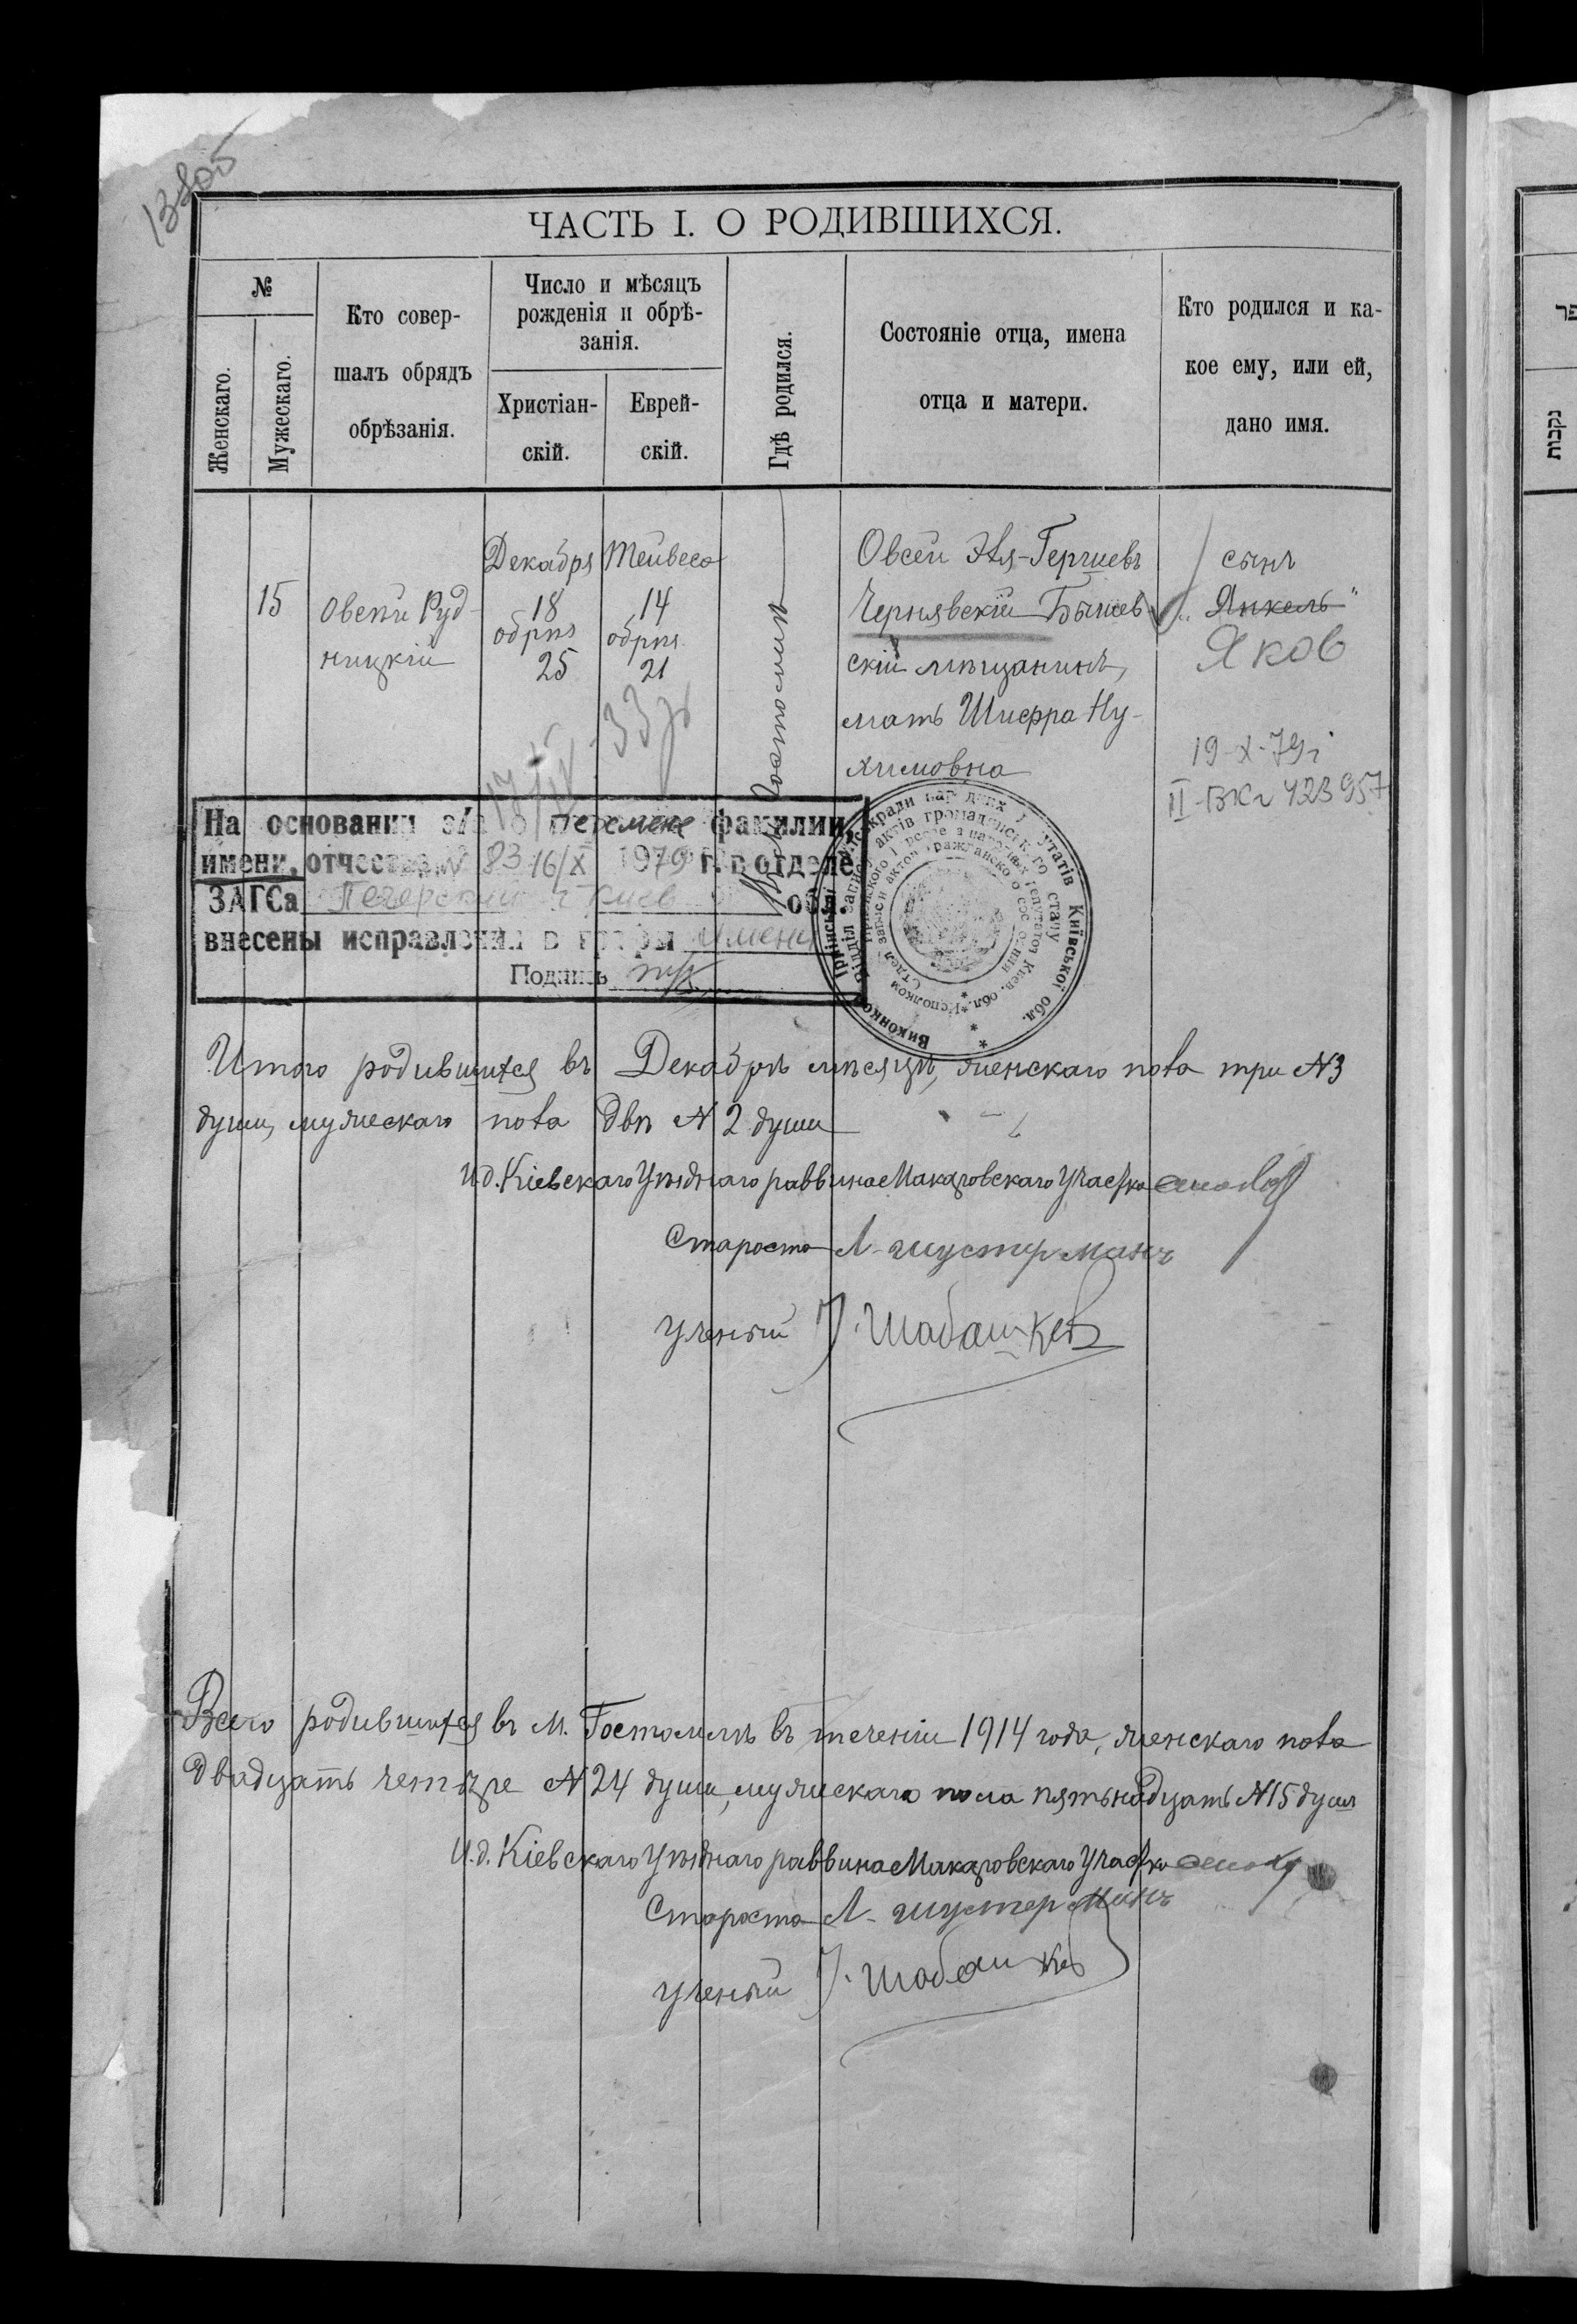 13805
ЧАСТЬ I. О РОДИВШИХСЯ.
№
Женскаго.
Мужескаго.
Кто совер-
шалъ обрядъ
обрѣзанія.
Число и мѣсяцъ
рожденія и обрѣ-
занія.
Христіан-
скій.
Еврей-
скій.
Гдѣ родился.
Состояніе отца, имена
отца и матери.
Кто родился и ка-
кое ему, или ей,
дано имя.
15
Овсѣй Руд-
ницкій
Декабря
18
обрѣз
25
Тейвеса
14
обрѣз
21
въ м. Гостомлѣ
Овсей Эля-Гершевъ
Чернявскій Бышев-
скій мѣщанинъ,
мать Шифра Ну-
химовна
сынъ
„Янкель"
Яков
19-X-79г
II-БК 423957
На основании з/а о перемене фамилии,
имени, отчества № 83 16/X 1979 г. в отделе
ЗАГСа Печерский г Киев обл.
внесены исправления в графы имени
Подпись
Итого родившихся въ Декабрѣ мѣсяцѣ, женскаго пола три №3
души, мужескаго пола двѣ № 2 души
И.д. Кіевскаго Уѣзднаго раввина Макаровскаго Участка
Староста Л. Шустерманъ
Ученый
Всего родившихся въ м. Гостомлѣ въ теченіи 1914 года, женскаго пола
двадцать четыре № 24 души, мужескаго пола пятьнадцать №15 душъ
И.д. Кіевскаго Уѣзднаго раввина Макаровскаго Участка
Староста Л. Шустерманъ
Ученый
פר
נקבות